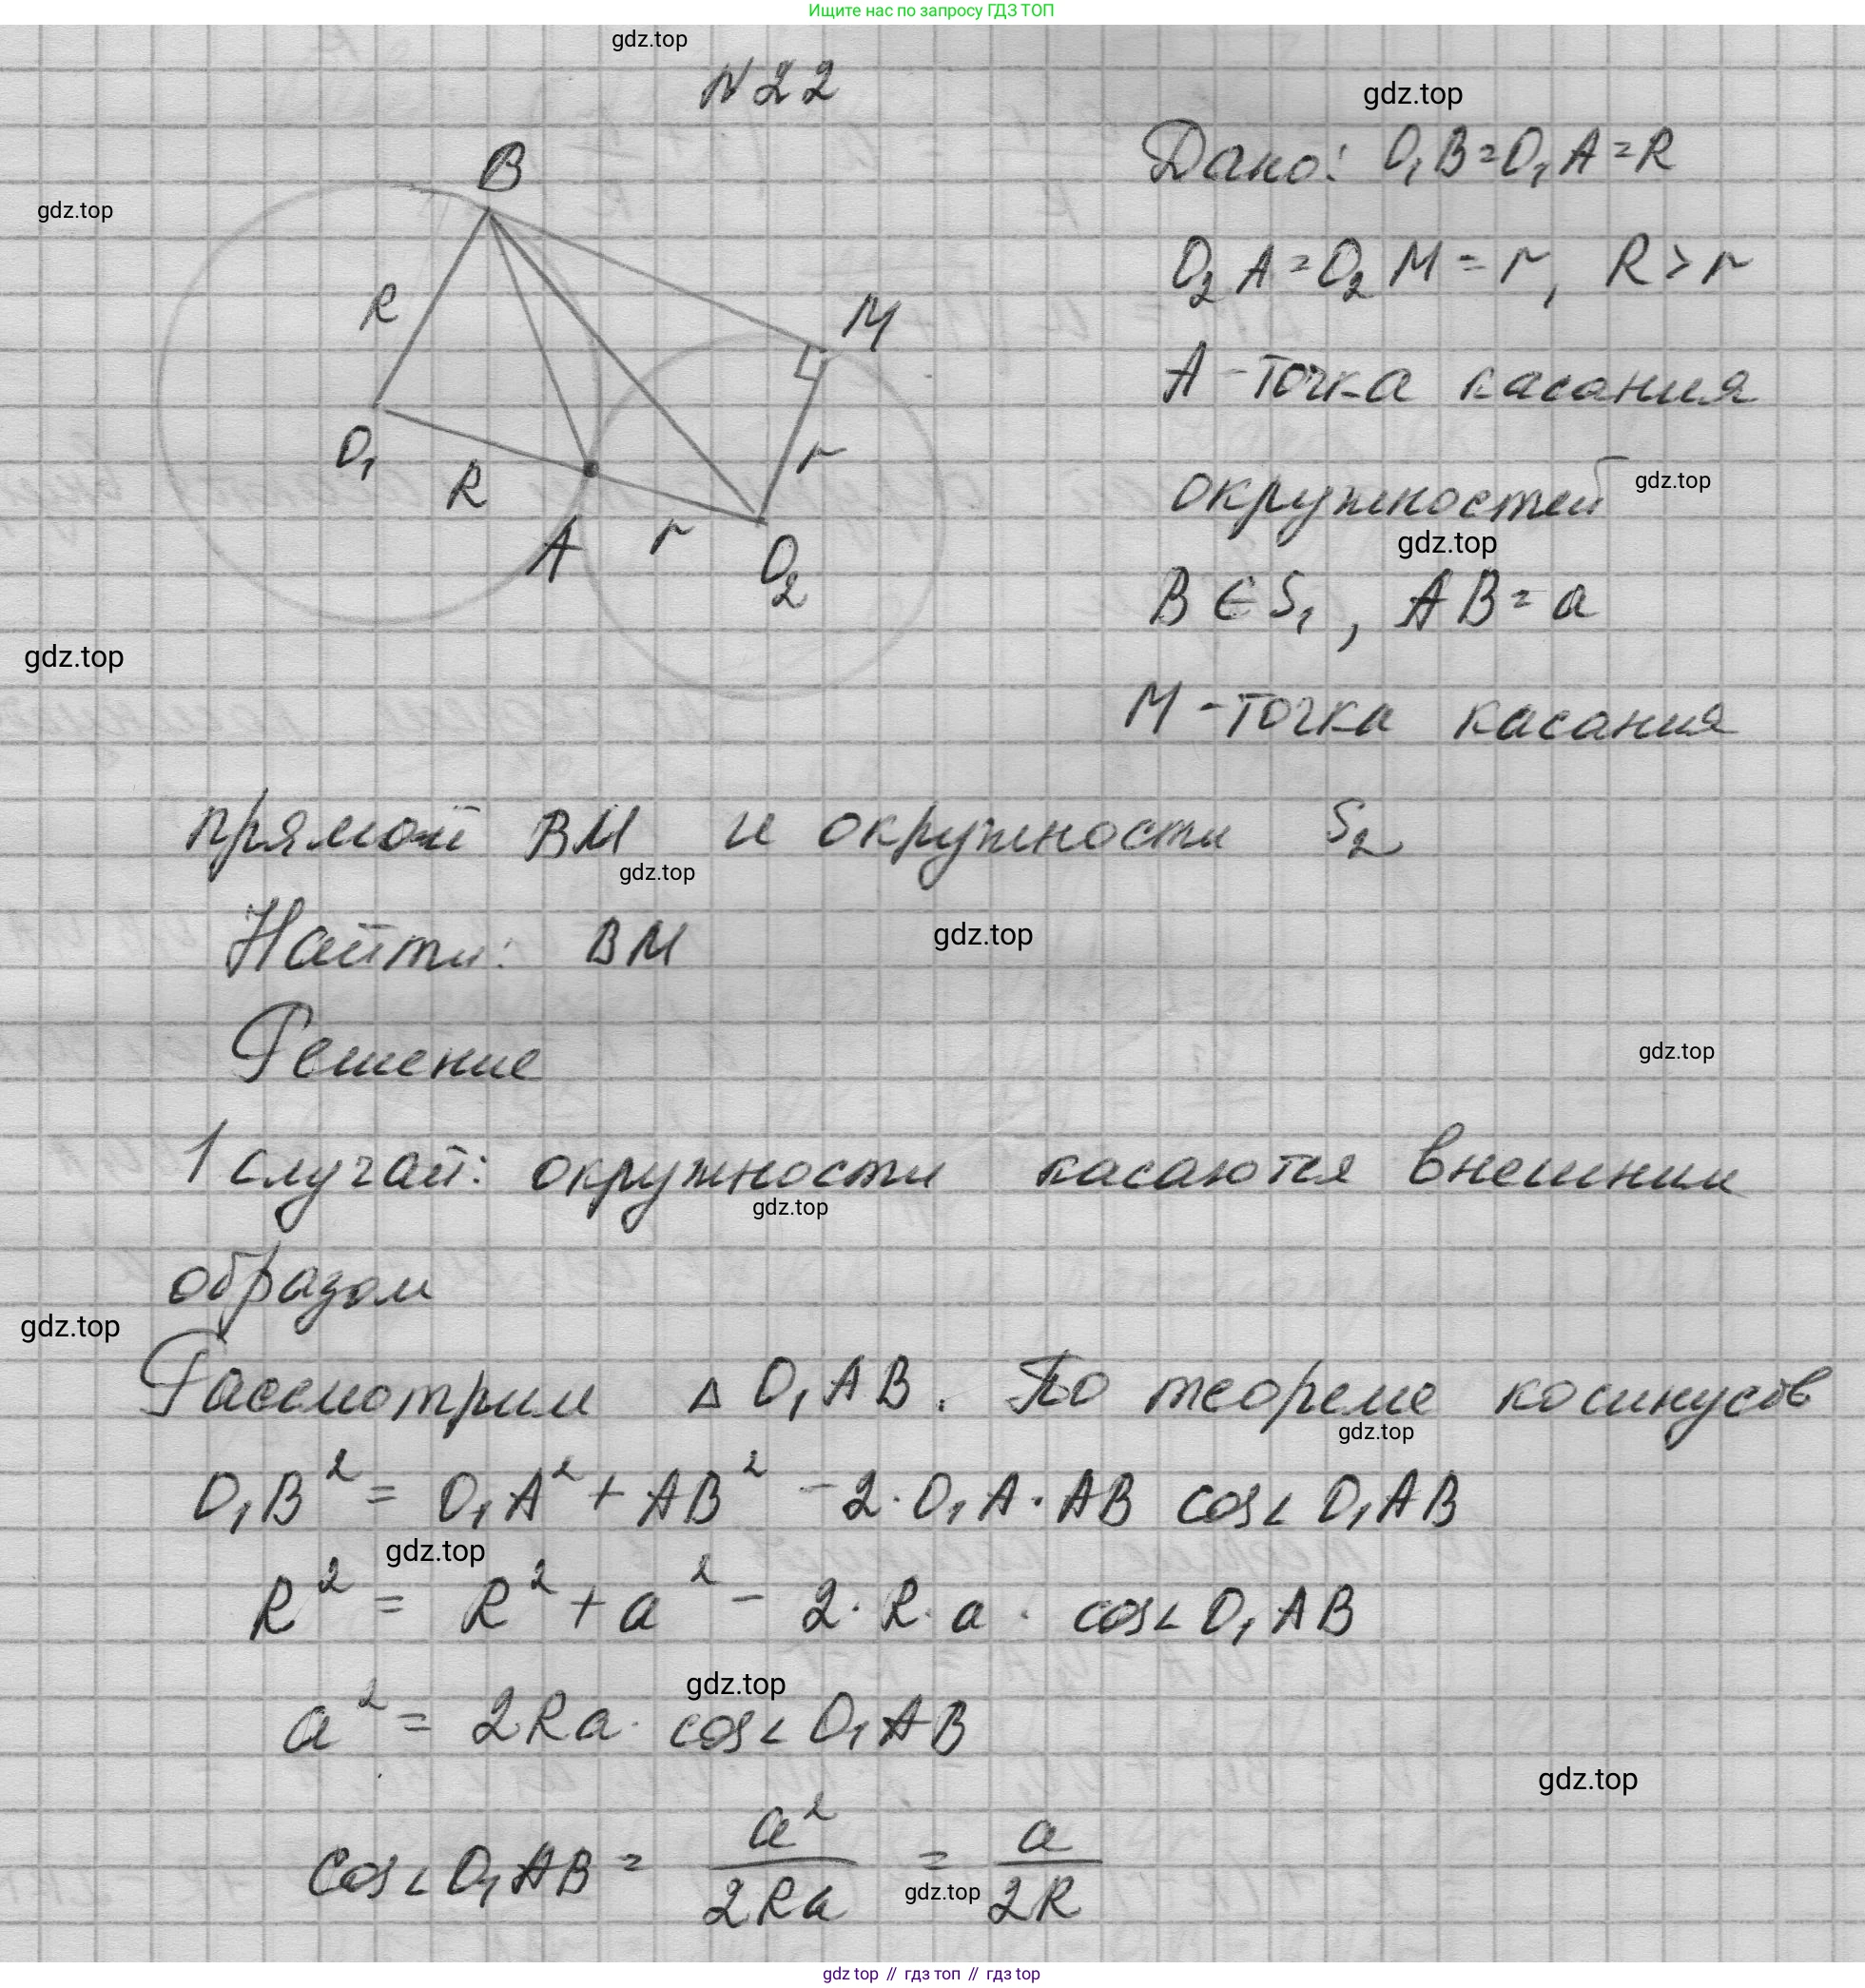 Ищите нас по запросу ГДЗ ТОП
gdz.top
N22
gdz.top
Дано: O₁B=O₁A=R
B
gdz.top
R
O₂A=O₂M=r, R>r
M
A - точка касания
O₁
R
r
окружностей
gdz.top
gdz.top
A
r
O₂
B∈S₁, AB=a
gdz.top
M - точка касания
прямой BM и окружности S₂
gdz.top
Найти: BM
gdz.top
Решение
gdz.top
1 случай: окружности касаются внешним
gdz.top
образом
gdz.top
Рассмотрим △O₁AB. По теореме косинусов
gdz.top
O₁B² = O₁A² + AB² - 2·O₁A·AB cos∠O₁AB
gdz.top
R² = R² + a² - 2·R·a·cos∠O₁AB
gdz.top
a² = 2Ra·cos∠O₁AB
gdz.top
cos∠O₁AB = a²/2Ra = a/2R
gdz.top
gdz top // гдз топ // гдз top